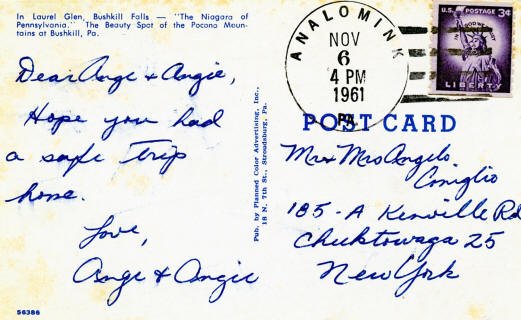 In Laurel Glen, Bushkill Falls — "The Niagara of
Pennsylvania." The Beauty Spot of the Pocono Moun-
tains at Bushkill, Pa.
Dear Ange & Angie,
Hope you had
a safe trip
home.
Love,
Ange & Angie
56386
Pub. by Planned Color Advertising, Inc.,
18 N. 7th St., Stroudsburg, Pa.
ANALOMINK
NOV
6
4 PM
1961
PA.
U.S. POSTAGE 3¢
IN GOD WE TRUST
LIBERTY
POST CARD
Mr & Mrs Angelo
Coniglio
185-A Kenville Rd
Cheektowaga 25
New York